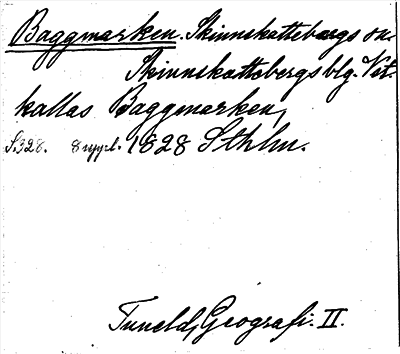 Baggmarken. Skinnskattebergs sn.
Skinnskattebergs blg. Vst.
kallas Baggmarken,
S. 328. 8 uppl. 1828 Sthlm.
Tuneld, Geografi. II.